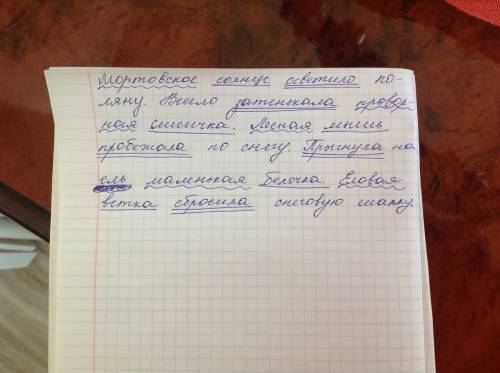 Мортовское солнце осветило по-
ляну. Весело затенькала провор-
ная синичка. Лесная мышь
пробежала по снегу. Прыгнула на
ель маленькая белочка. Еловая
ветка сбросила снеговую шапку.